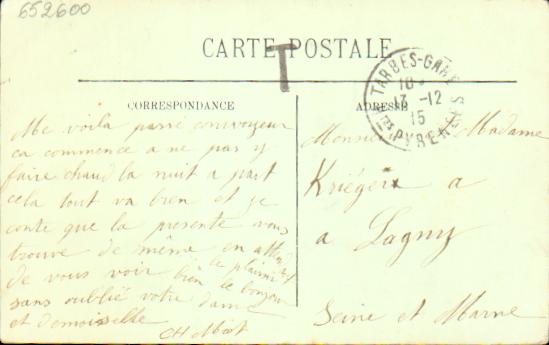 652600
CARTE POSTALE
T
TARBES-GARE
17-12
15
PYRENEES
CORRESPONDANCE
ADRESSE
Me voila passé convoyeur
ca commence a ne pas y
faire chaud la nuit a part
cela tout va bien et je
conte que la presente vous
trouve de même en attend
de vous voir le plaisir
bien le bonjour
sans oublié votre dame
et demoiselle
Monsieur et Madame
Kriéger a
a Lagny
Seine et Marne